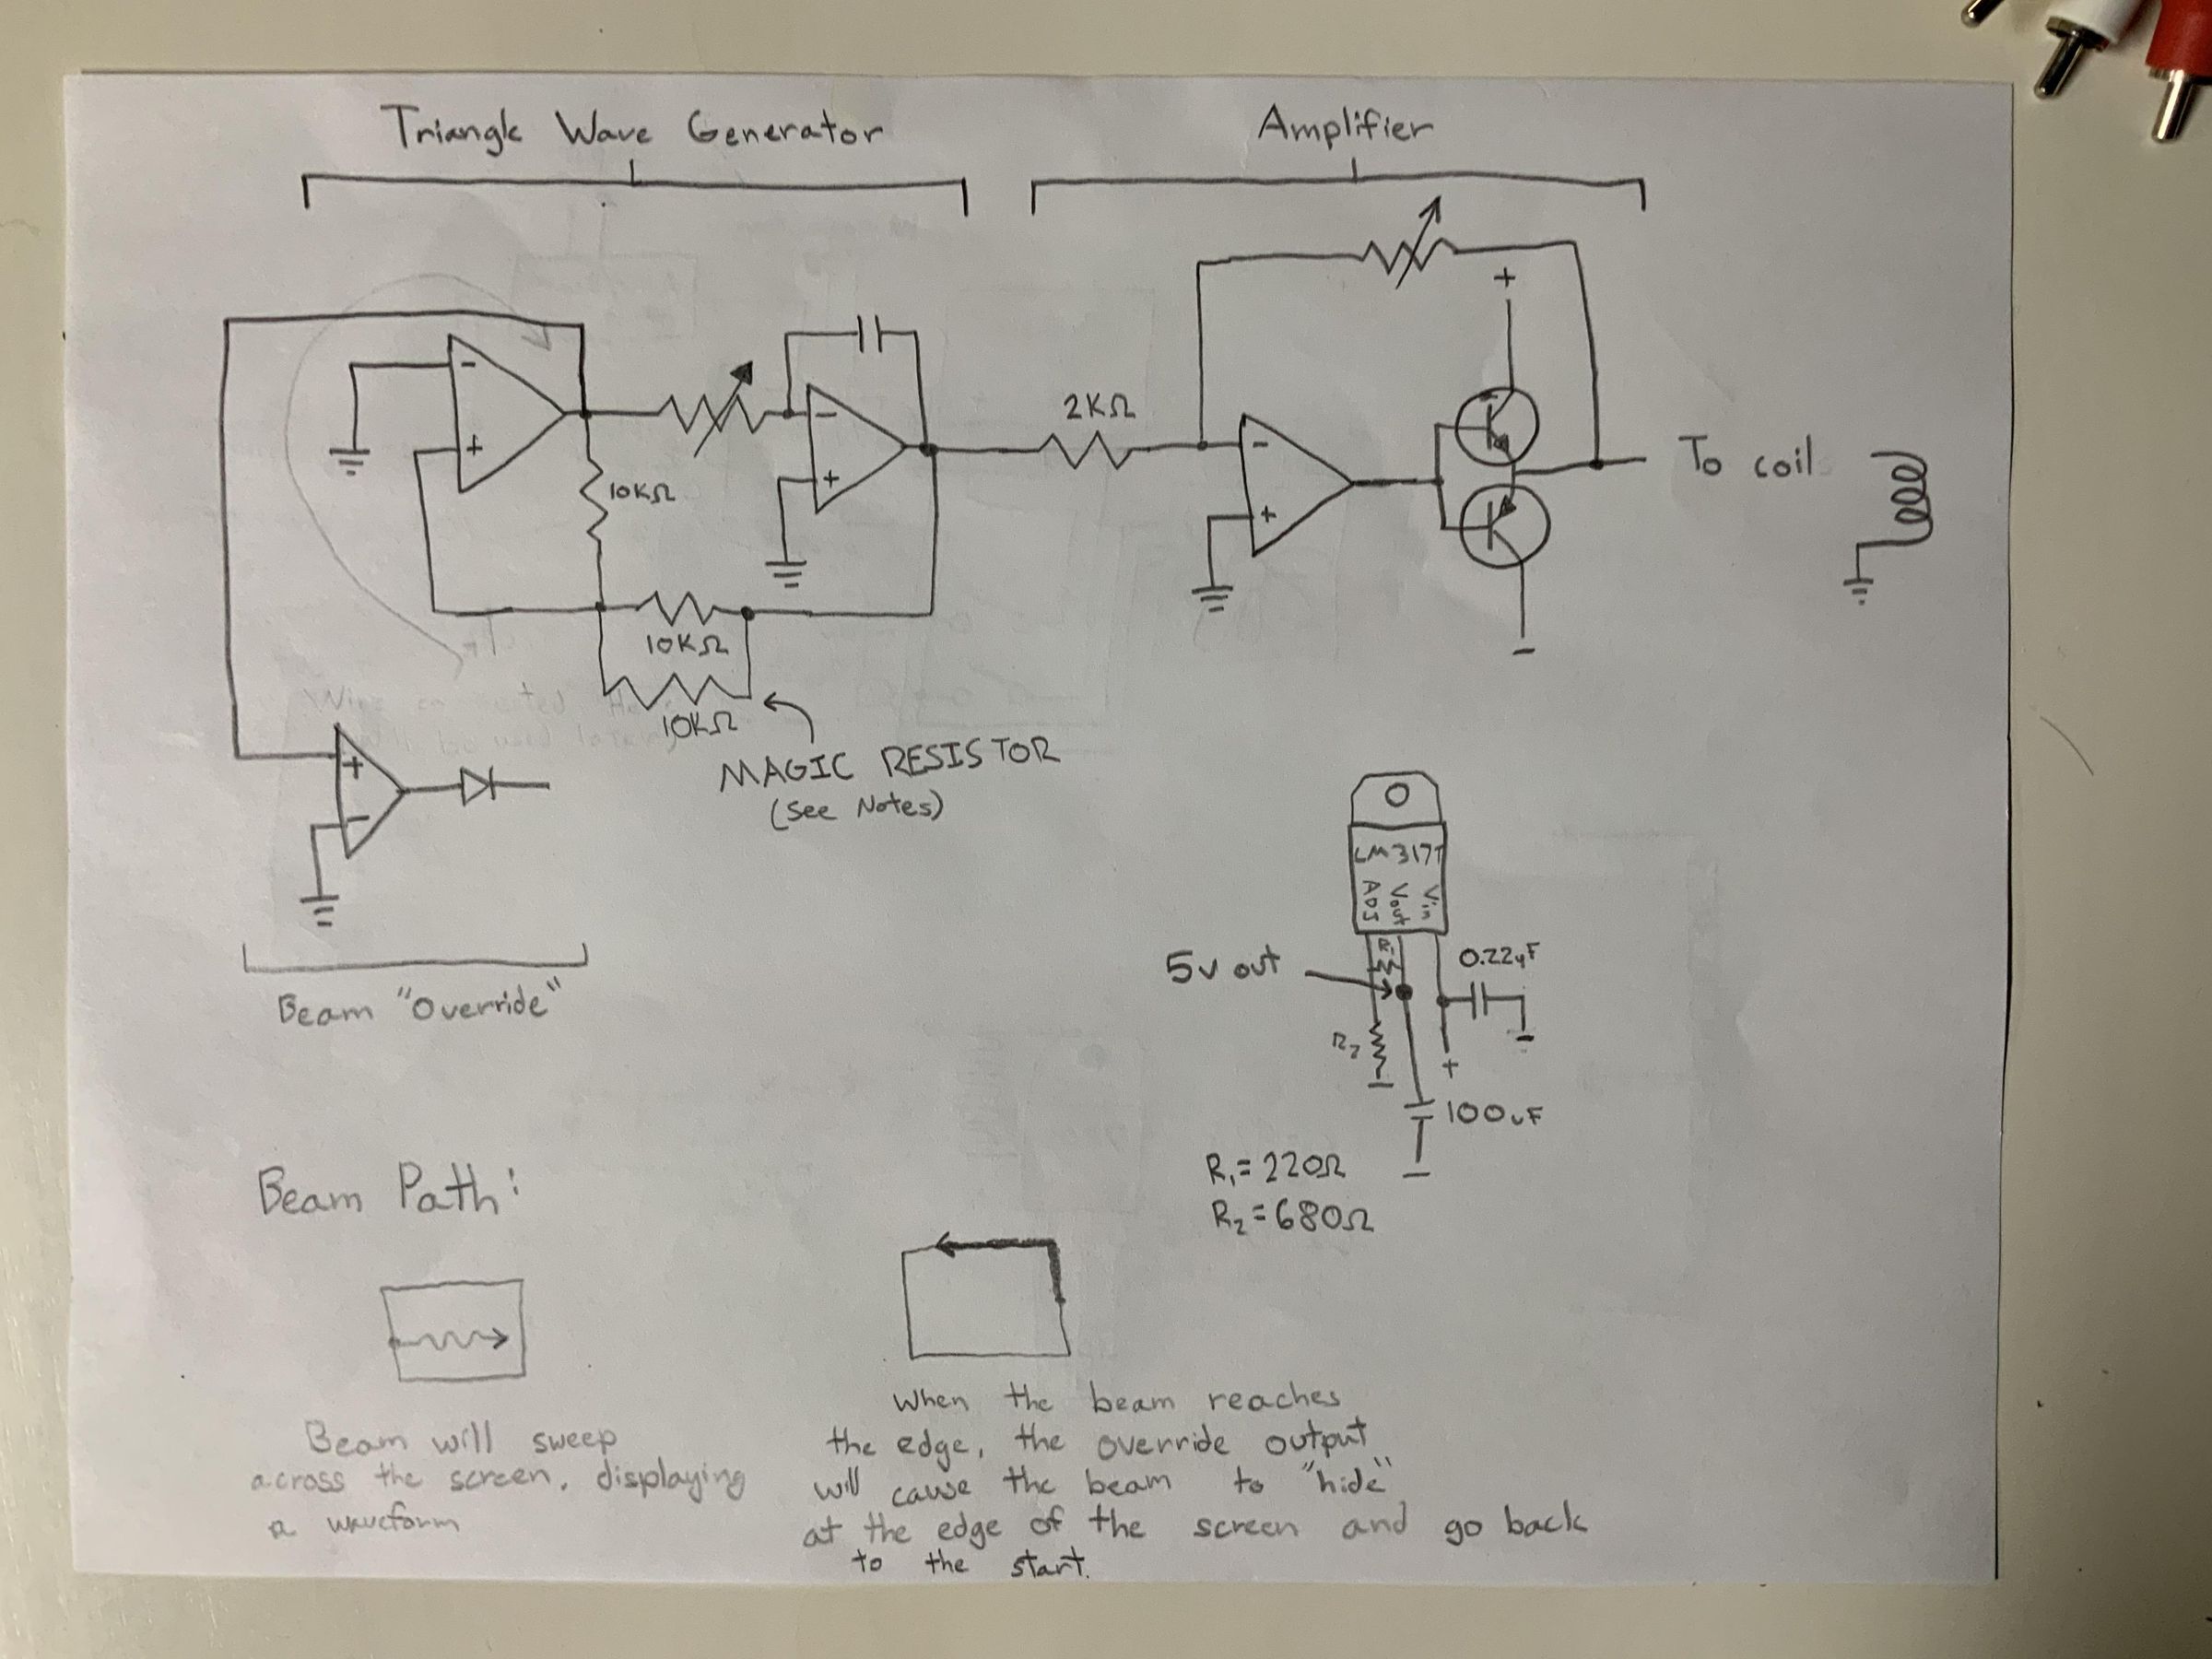 Triangle Wave Generator
Amplifier
+
-
+
10KΩ
-
+
2KΩ
-
+
-
To coil
10KΩ
10KΩ
MAGIC RESISTOR
(See Notes)
+
-
Beam "Override"
LM317T
ADJ
Vout
Vin
R1
5v out
0.22uF
R2
+
100uF
R1=220Ω
R2=680Ω
Beam Path:
Beam will sweep
across the screen, displaying
a waveform
When the beam reaches
the edge, the override output
will cause the beam to "hide"
at the edge of the screen and go back
to the start.